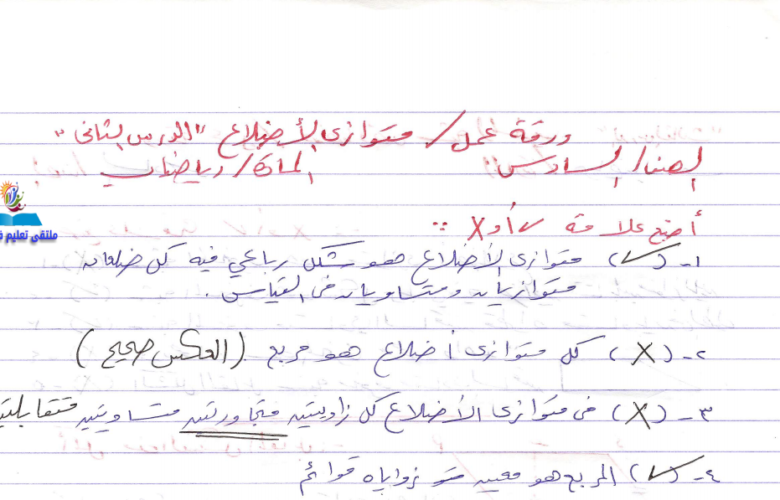 ورقة عمل / متوازي الأضلاع "الدرس الثاني"
الصف / السادس " المادة / رياضيات
أضع علامة √ أو X :
ملتقى تعليم
١- (√) متوازي الأضلاع هو شكل رباعي فيه كل ضلعان
متوازيان ومتساويان في القياس .
٢- (X) كل متوازي أضلاع هو مربع (العكس صحيح)
٣- (X) في متوازي الأضلاع كل زاويتين متجاورتين متساويتين
٤- (√) المربع هو معين زواياه قوائم